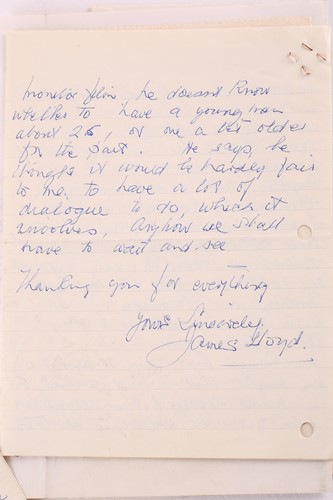 monster film, he doesn't know
whether to have a young man
about 25, or one a bit older
for the part. He says, he
thinks it would be hardly fair
to me, to have a lot of
dialogue to do, which it
involves, Anyhow we shall
have to wait and see
Thanking you for everything
Yours Sincerely.
James Lloyd.